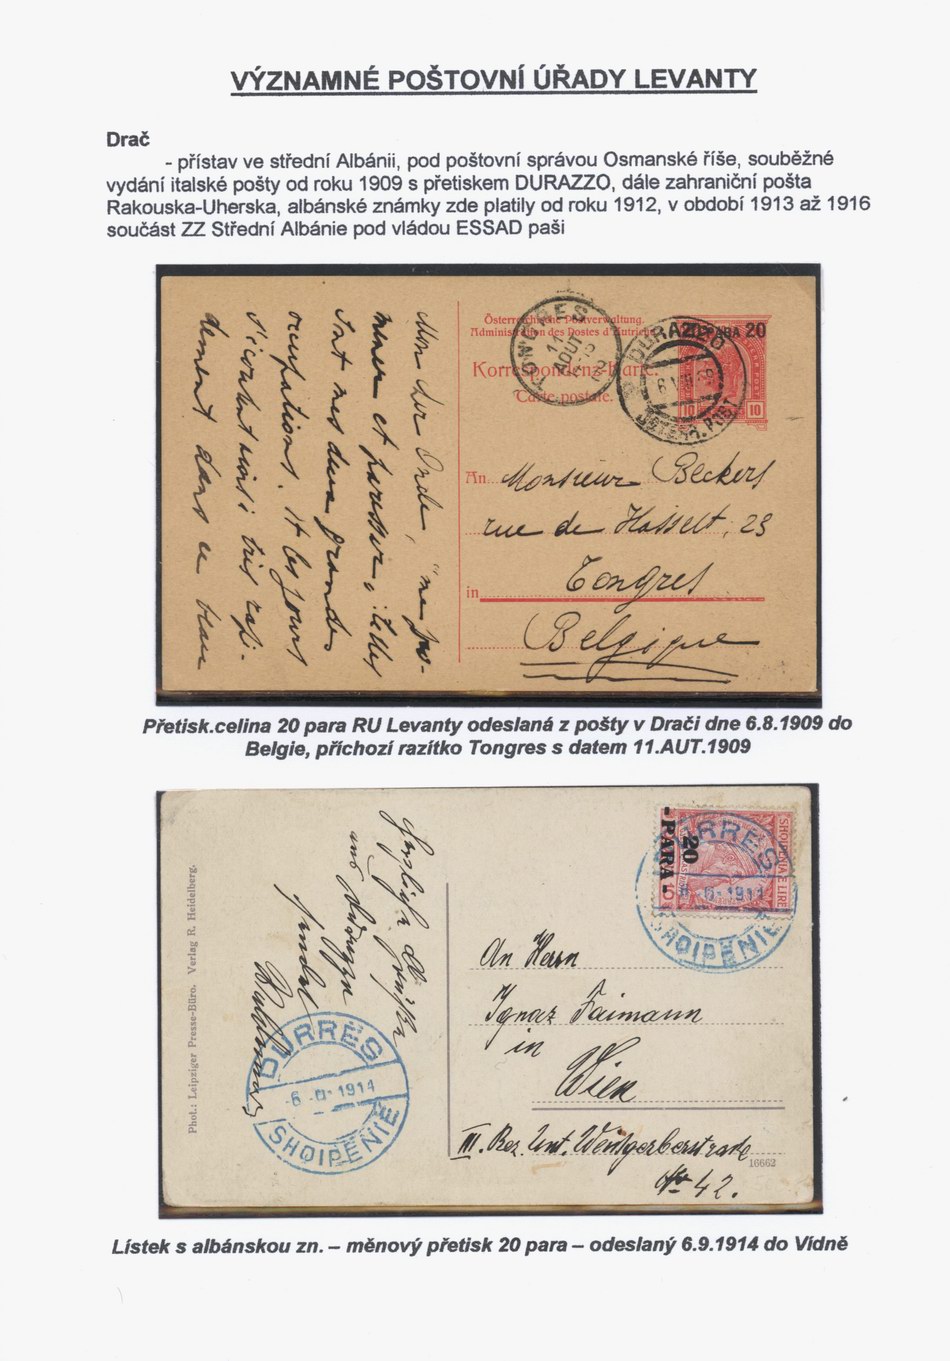 VÝZNAMNÉ POŠTOVNÍ ÚŘADY LEVANTY
Drač
- přístav ve střední Albánii, pod poštovní správou Osmanské říše, souběžné
vydání italské pošty od roku 1909 s přetiskem DURAZZO, dále zahraniční pošta
Rakouska-Uherska, albánské známky zde platily od roku 1912, v období 1913 až 1916
součást ZZ Střední Albánie pod vládou ESSAD paši
Österreichische Postverwaltung.
Administration des Postes d'Autriche
Korrespondenz-Karte.
Carte postale.
TONGRES
11
AOUT
DURAZZO
ÖSTERR. POST
20 PARA 20
10 10
Mon cher Oncle,
mener et paresser,
sont mes deux grandes
occupations. Et les jours
s'écoulent
dans ce beau
An Monsieur Beckers
rue de Hasselt, 23
in Tongres
Belgique
Přetisk.celina 20 para RU Levanty odeslaná z pošty v Drači dne 6.8.1909 do
Belgie, příchozí razítko Tongres s datem 11.AUT.1909
Phot.: Leipziger Presse-Büro. Verlag R. Heidelberg.
Herzliche Grüße
aus Durazzo
sendet
DURRËS
1914
SHQIPËNIE
SHQIPENIA E LIRE
20
- PARA -
DURRËS
1914
SHQIPËNIE
An Herrn
Ignaz Faimann
in
Wien
III. Bez. Unt. Weißgerberstraße
16662
No 42.
Lístek s albánskou zn. – měnový přetisk 20 para – odeslaný 6.9.1914 do Vídně